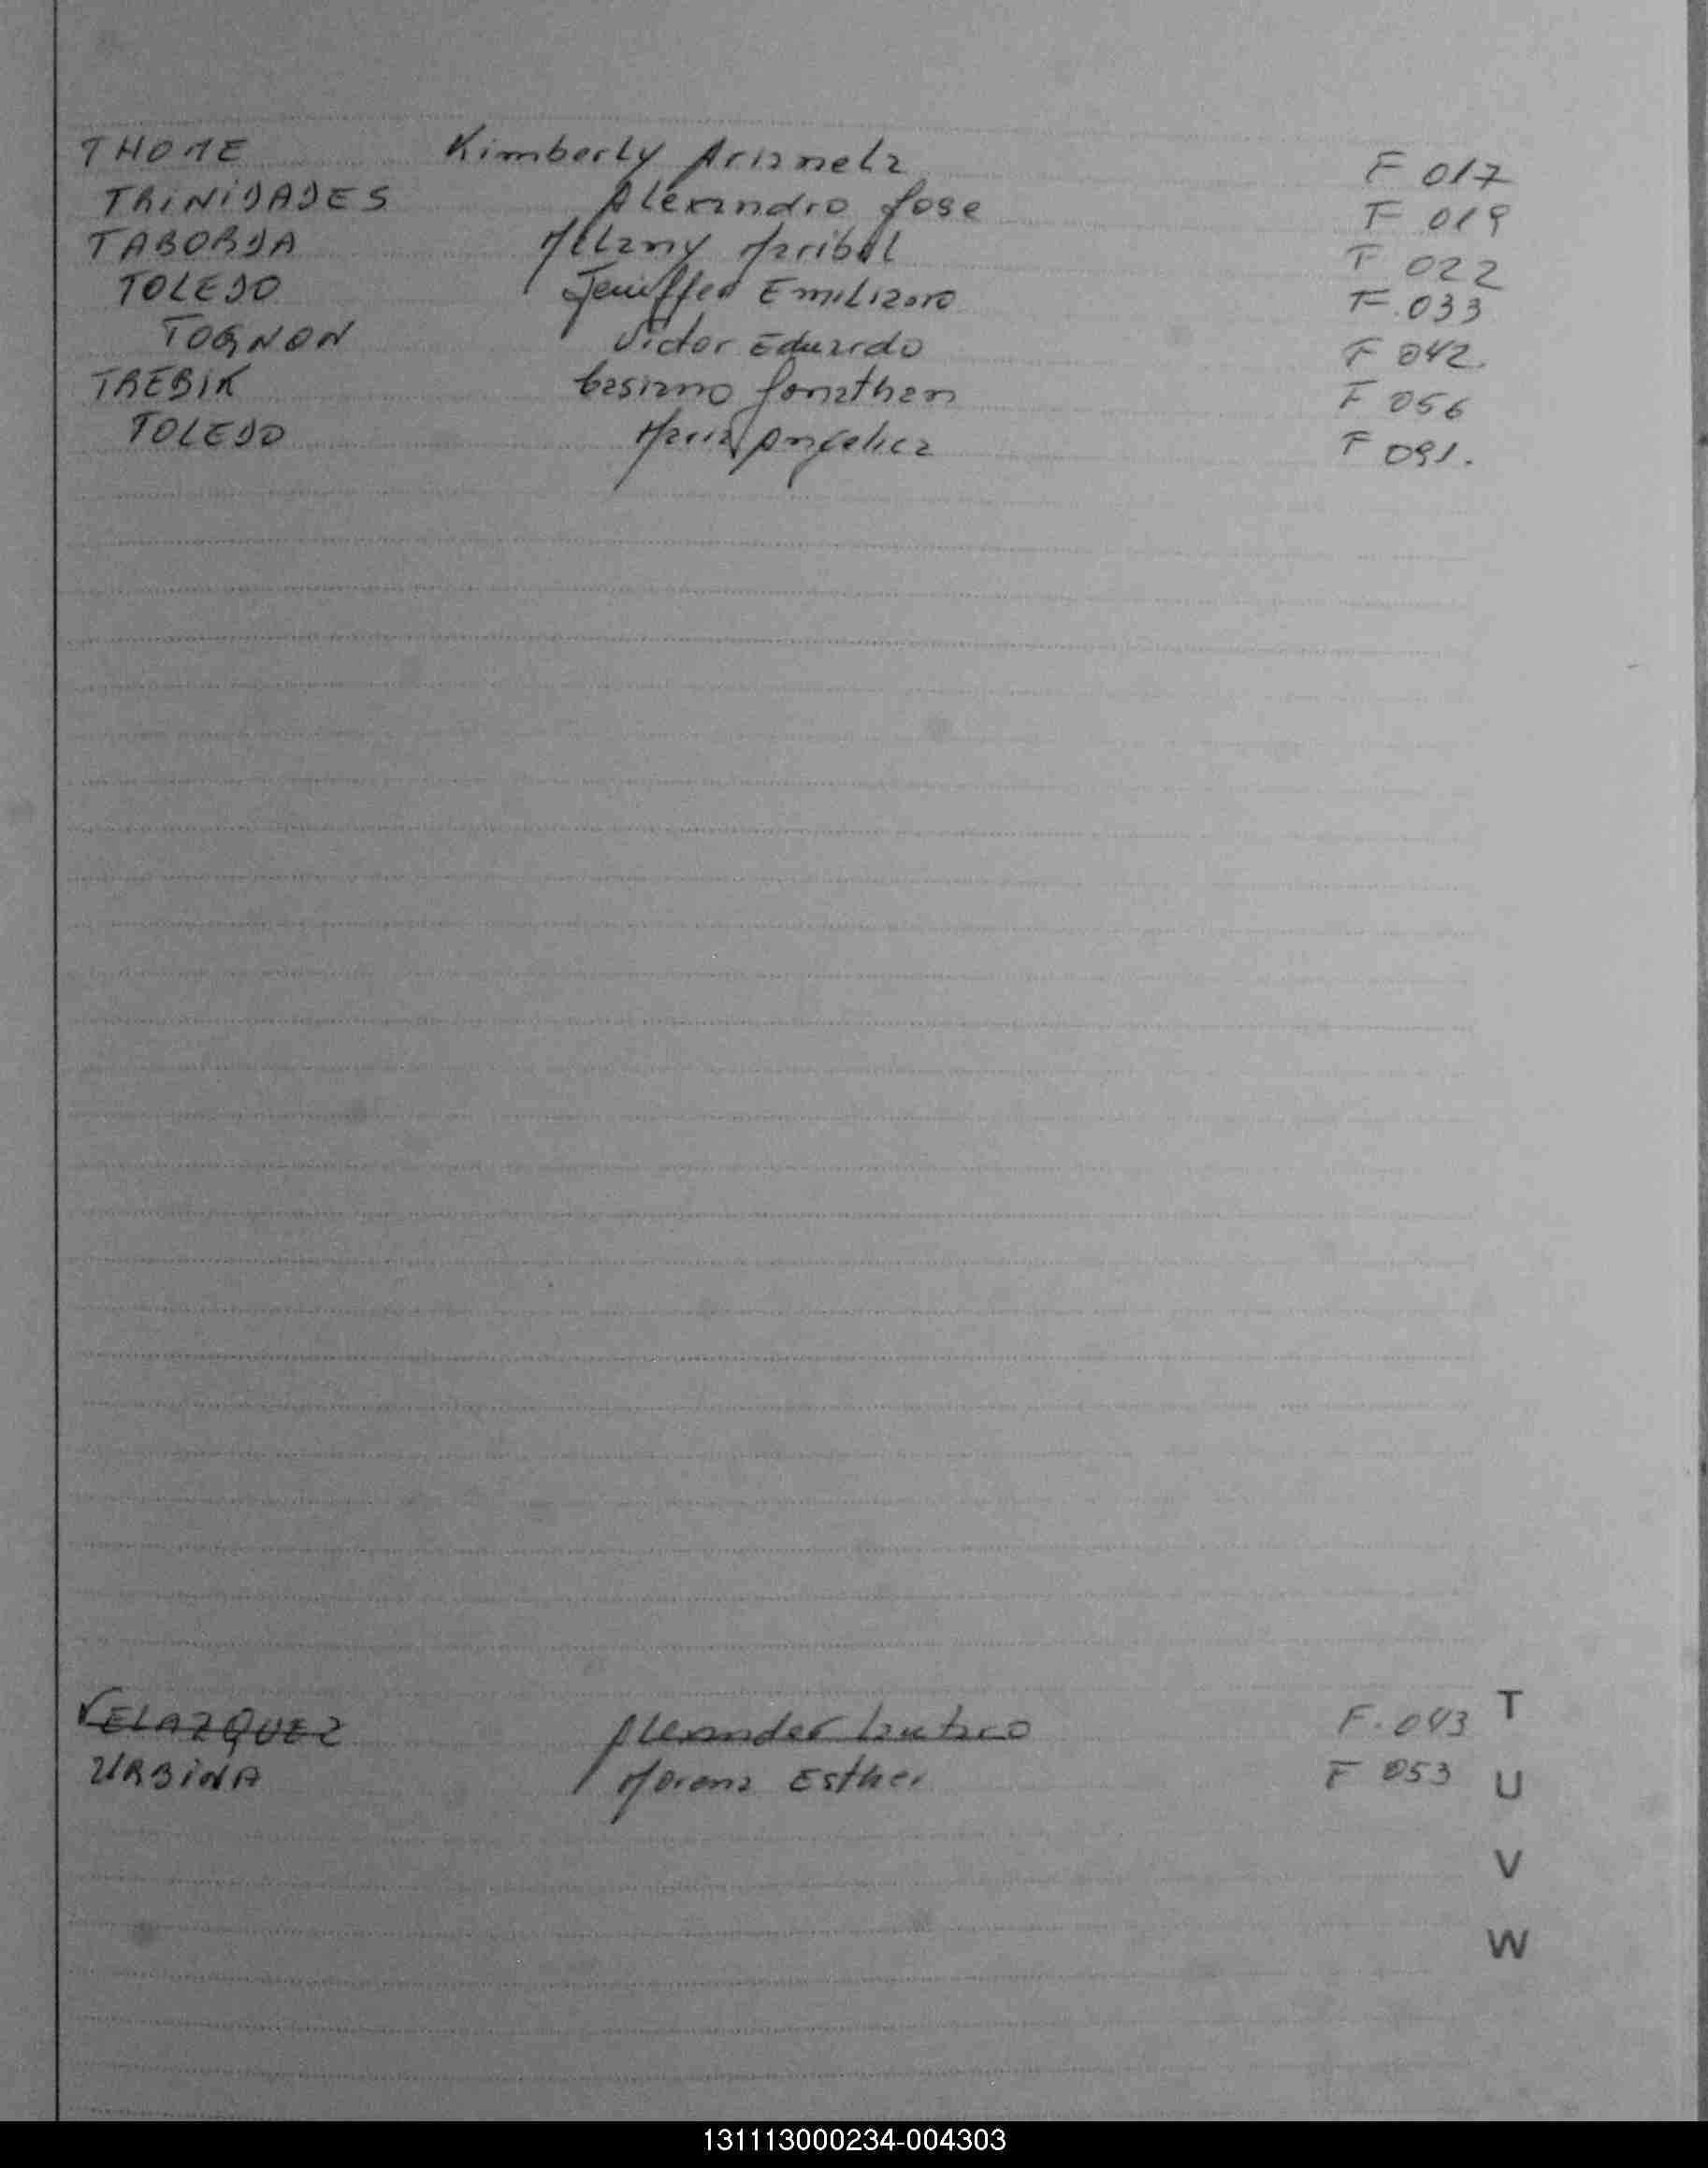 THOME Kimberly Arianela F 017
TRINIDADES Alexandro Jose F 019
TABORDA Melany Maribel F 022
TOLEDO Jeniffer Emiliano F.033
TOGNON Victor Eduardo F 042.
TREBIK Casiano Jonathan F 056
TOLEDO Maria Angelica F 091.
T
VELAZQUEZ Alexander Lautaro F.043
URBINA Morena Esther F 053
U
V
W
131113000234-004303